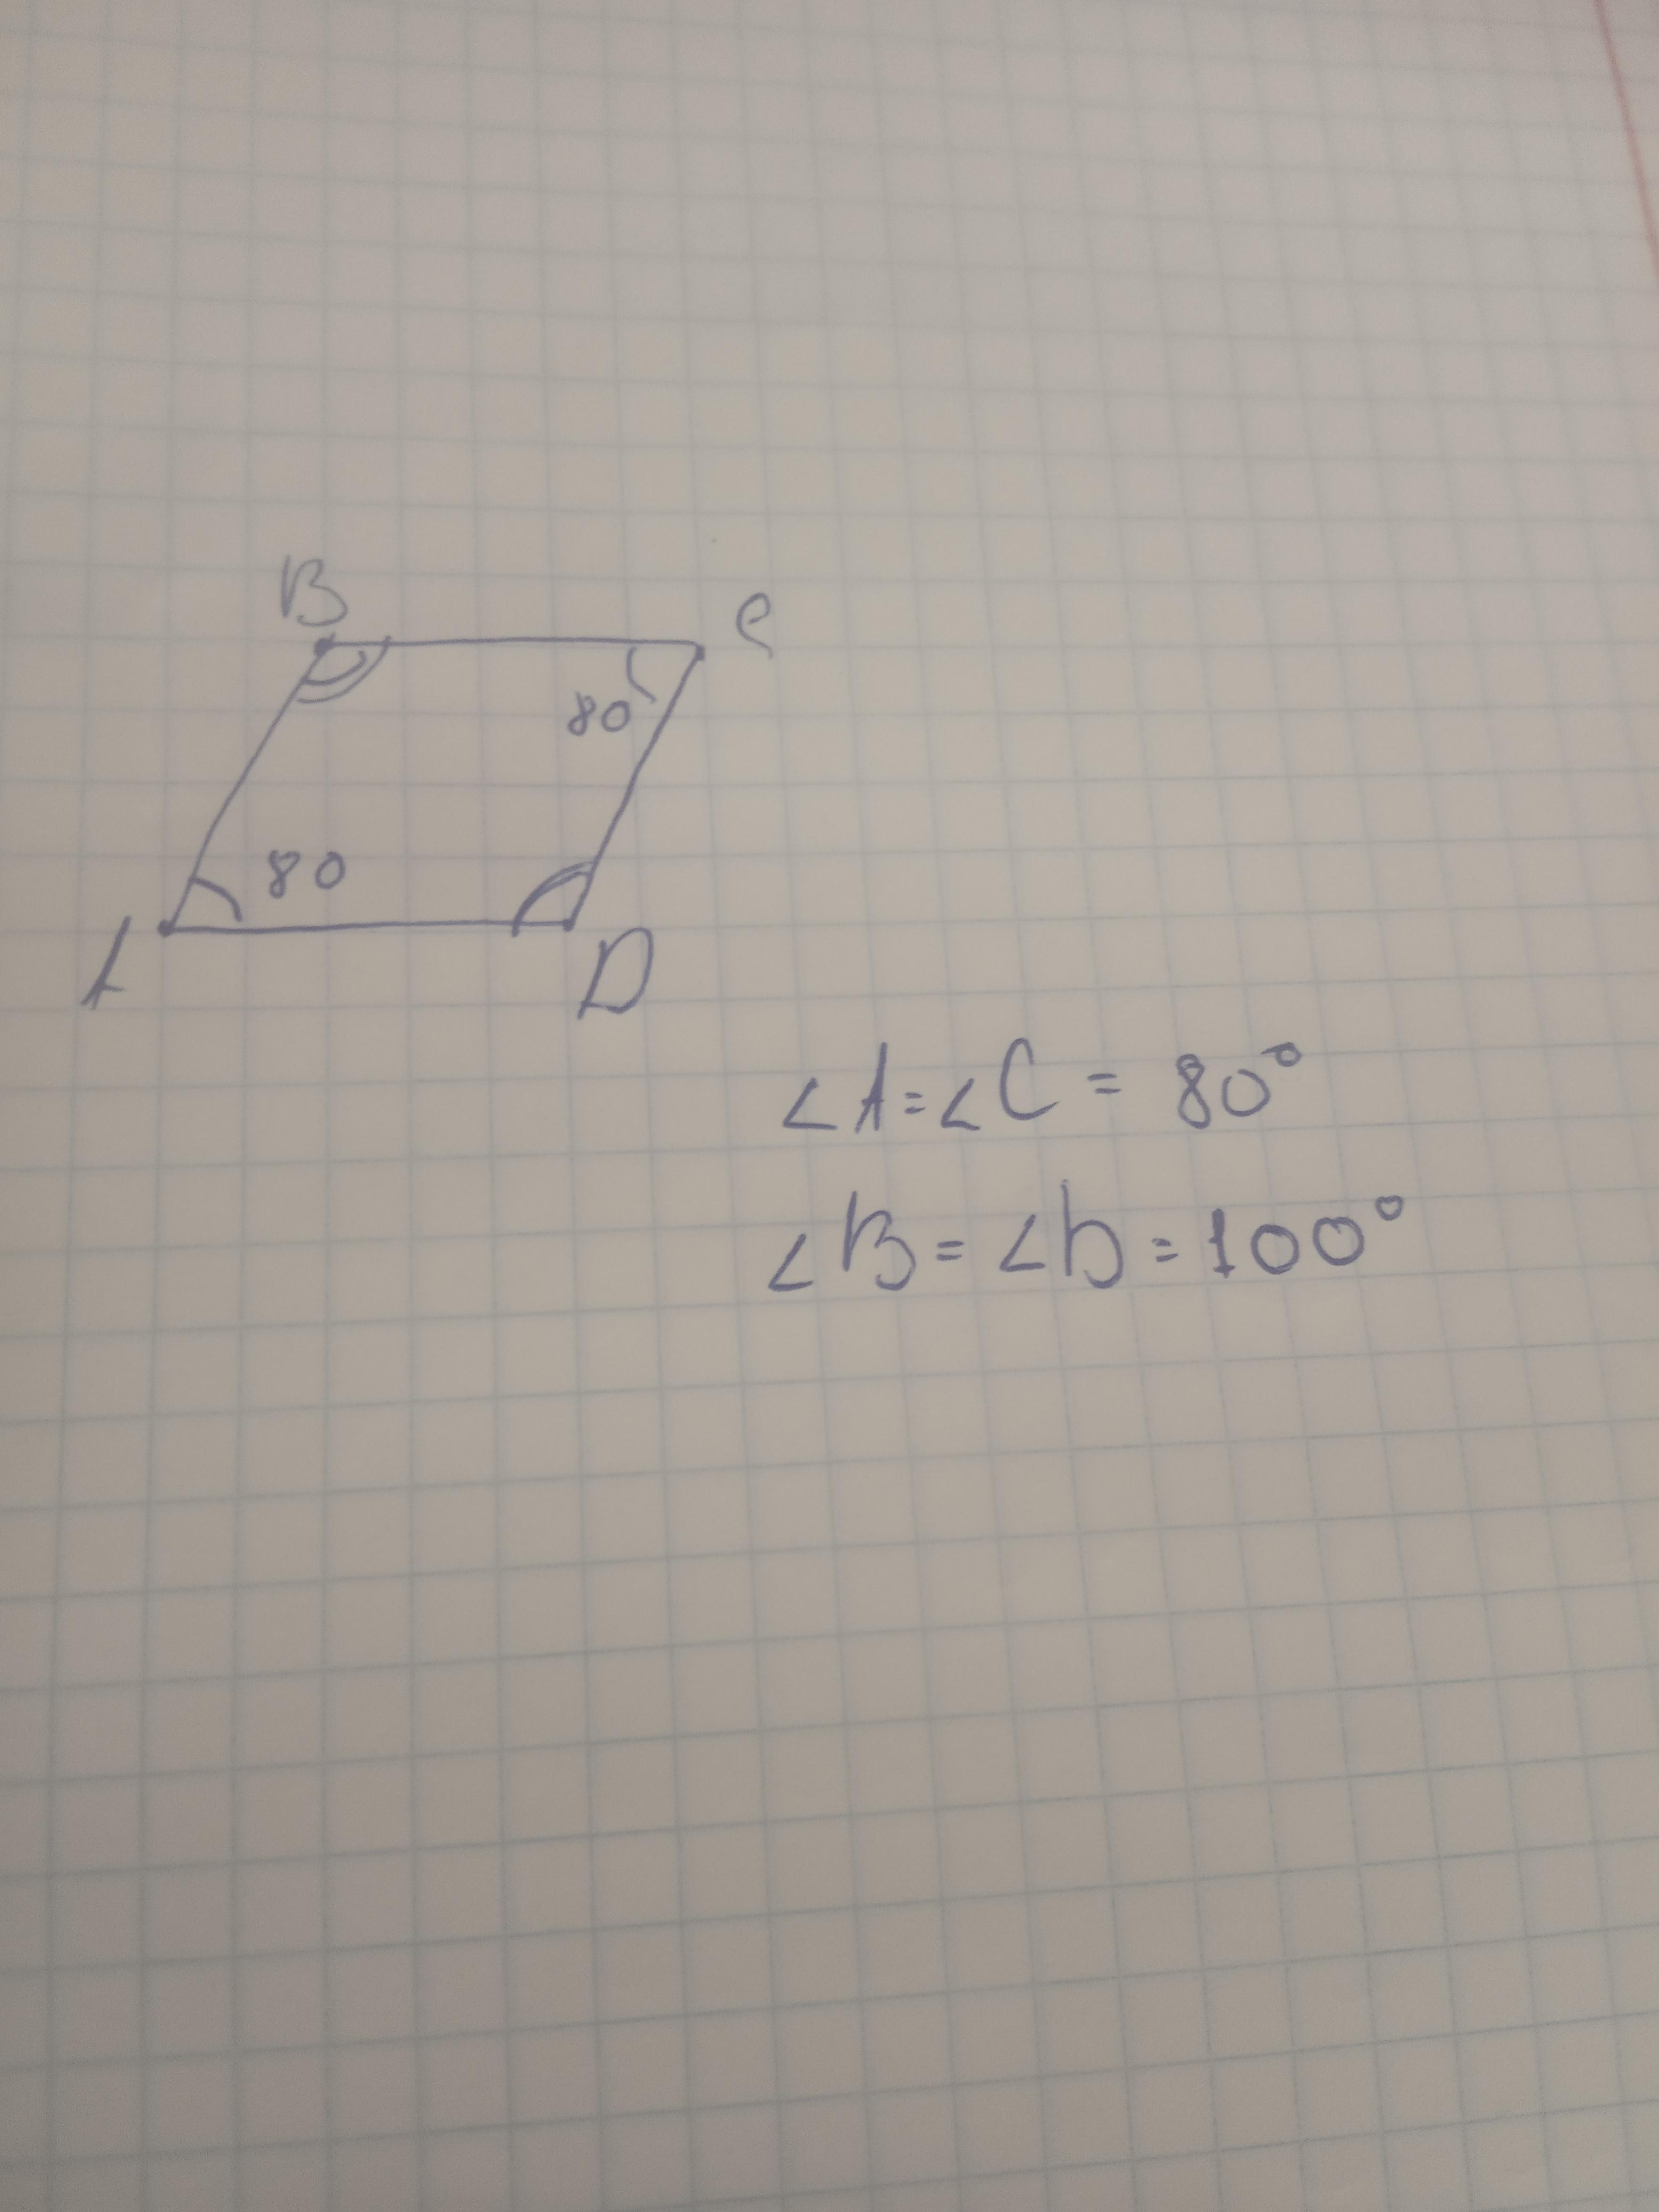 B
C
80
80
A
D
∠A=∠C = 80°
∠B = ∠D = 100°